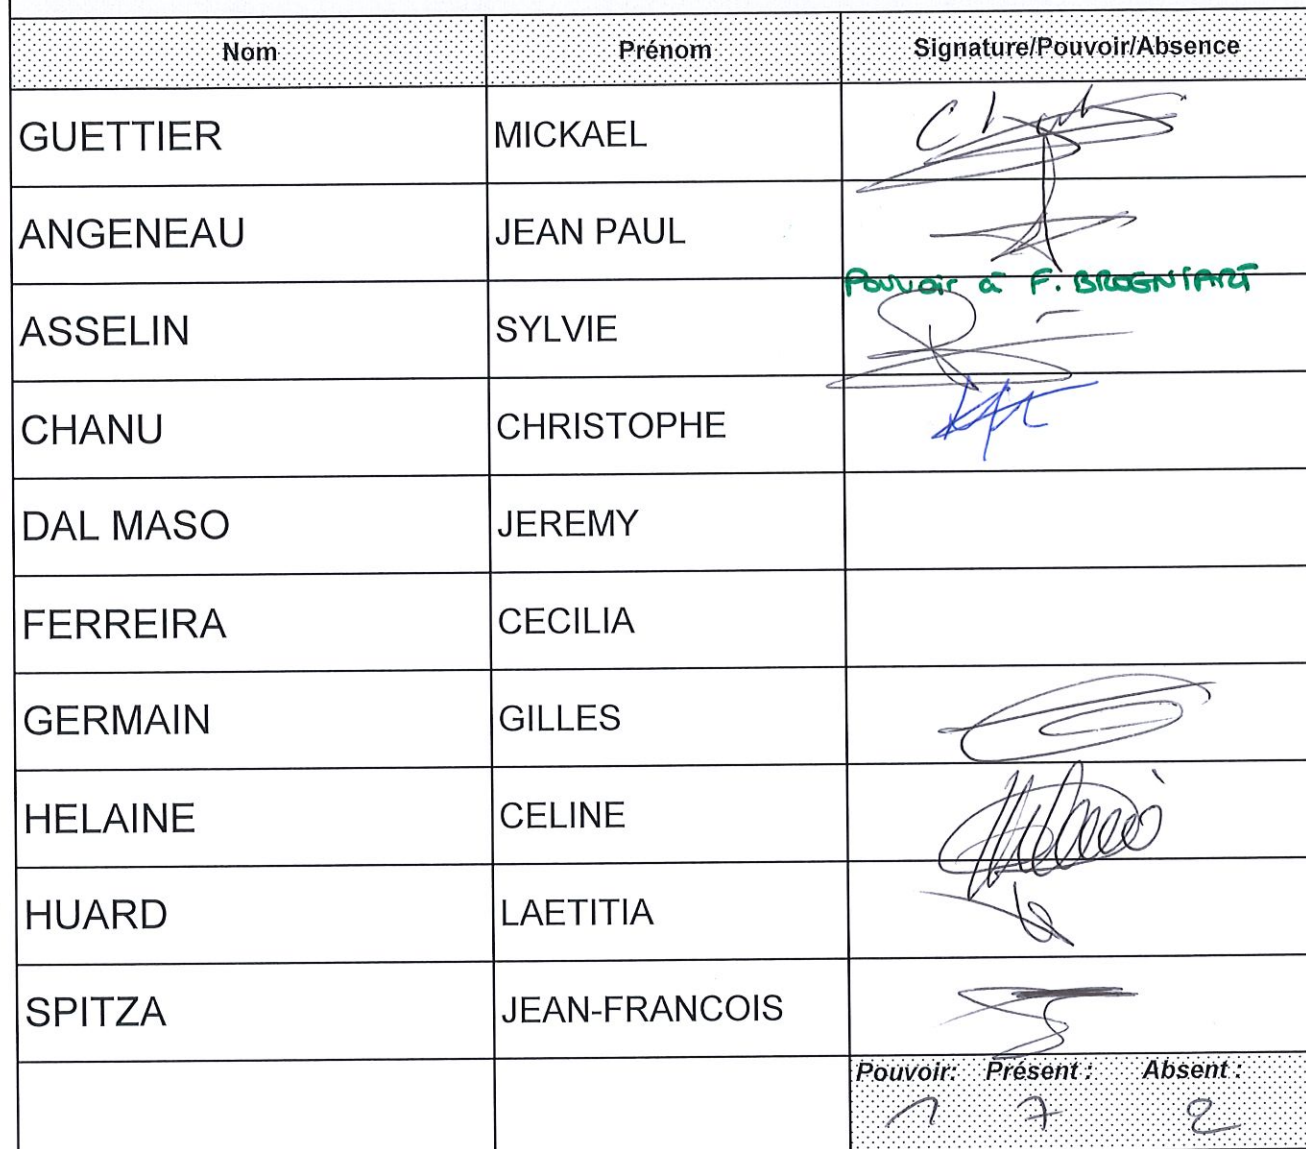 Nom Prénom Signature/Pouvoir/Absence
GUETTIER MICKAEL
ANGENEAU JEAN PAUL
Pouvoir à F. BROGNIART
ASSELIN SYLVIE
CHANU CHRISTOPHE
DAL MASO JEREMY
FERREIRA CECILIA
GERMAIN GILLES
HELAINE CELINE
HUARD LAETITIA
SPITZA JEAN-FRANCOIS
Pouvoir: Présent : Absent :
1 7 2